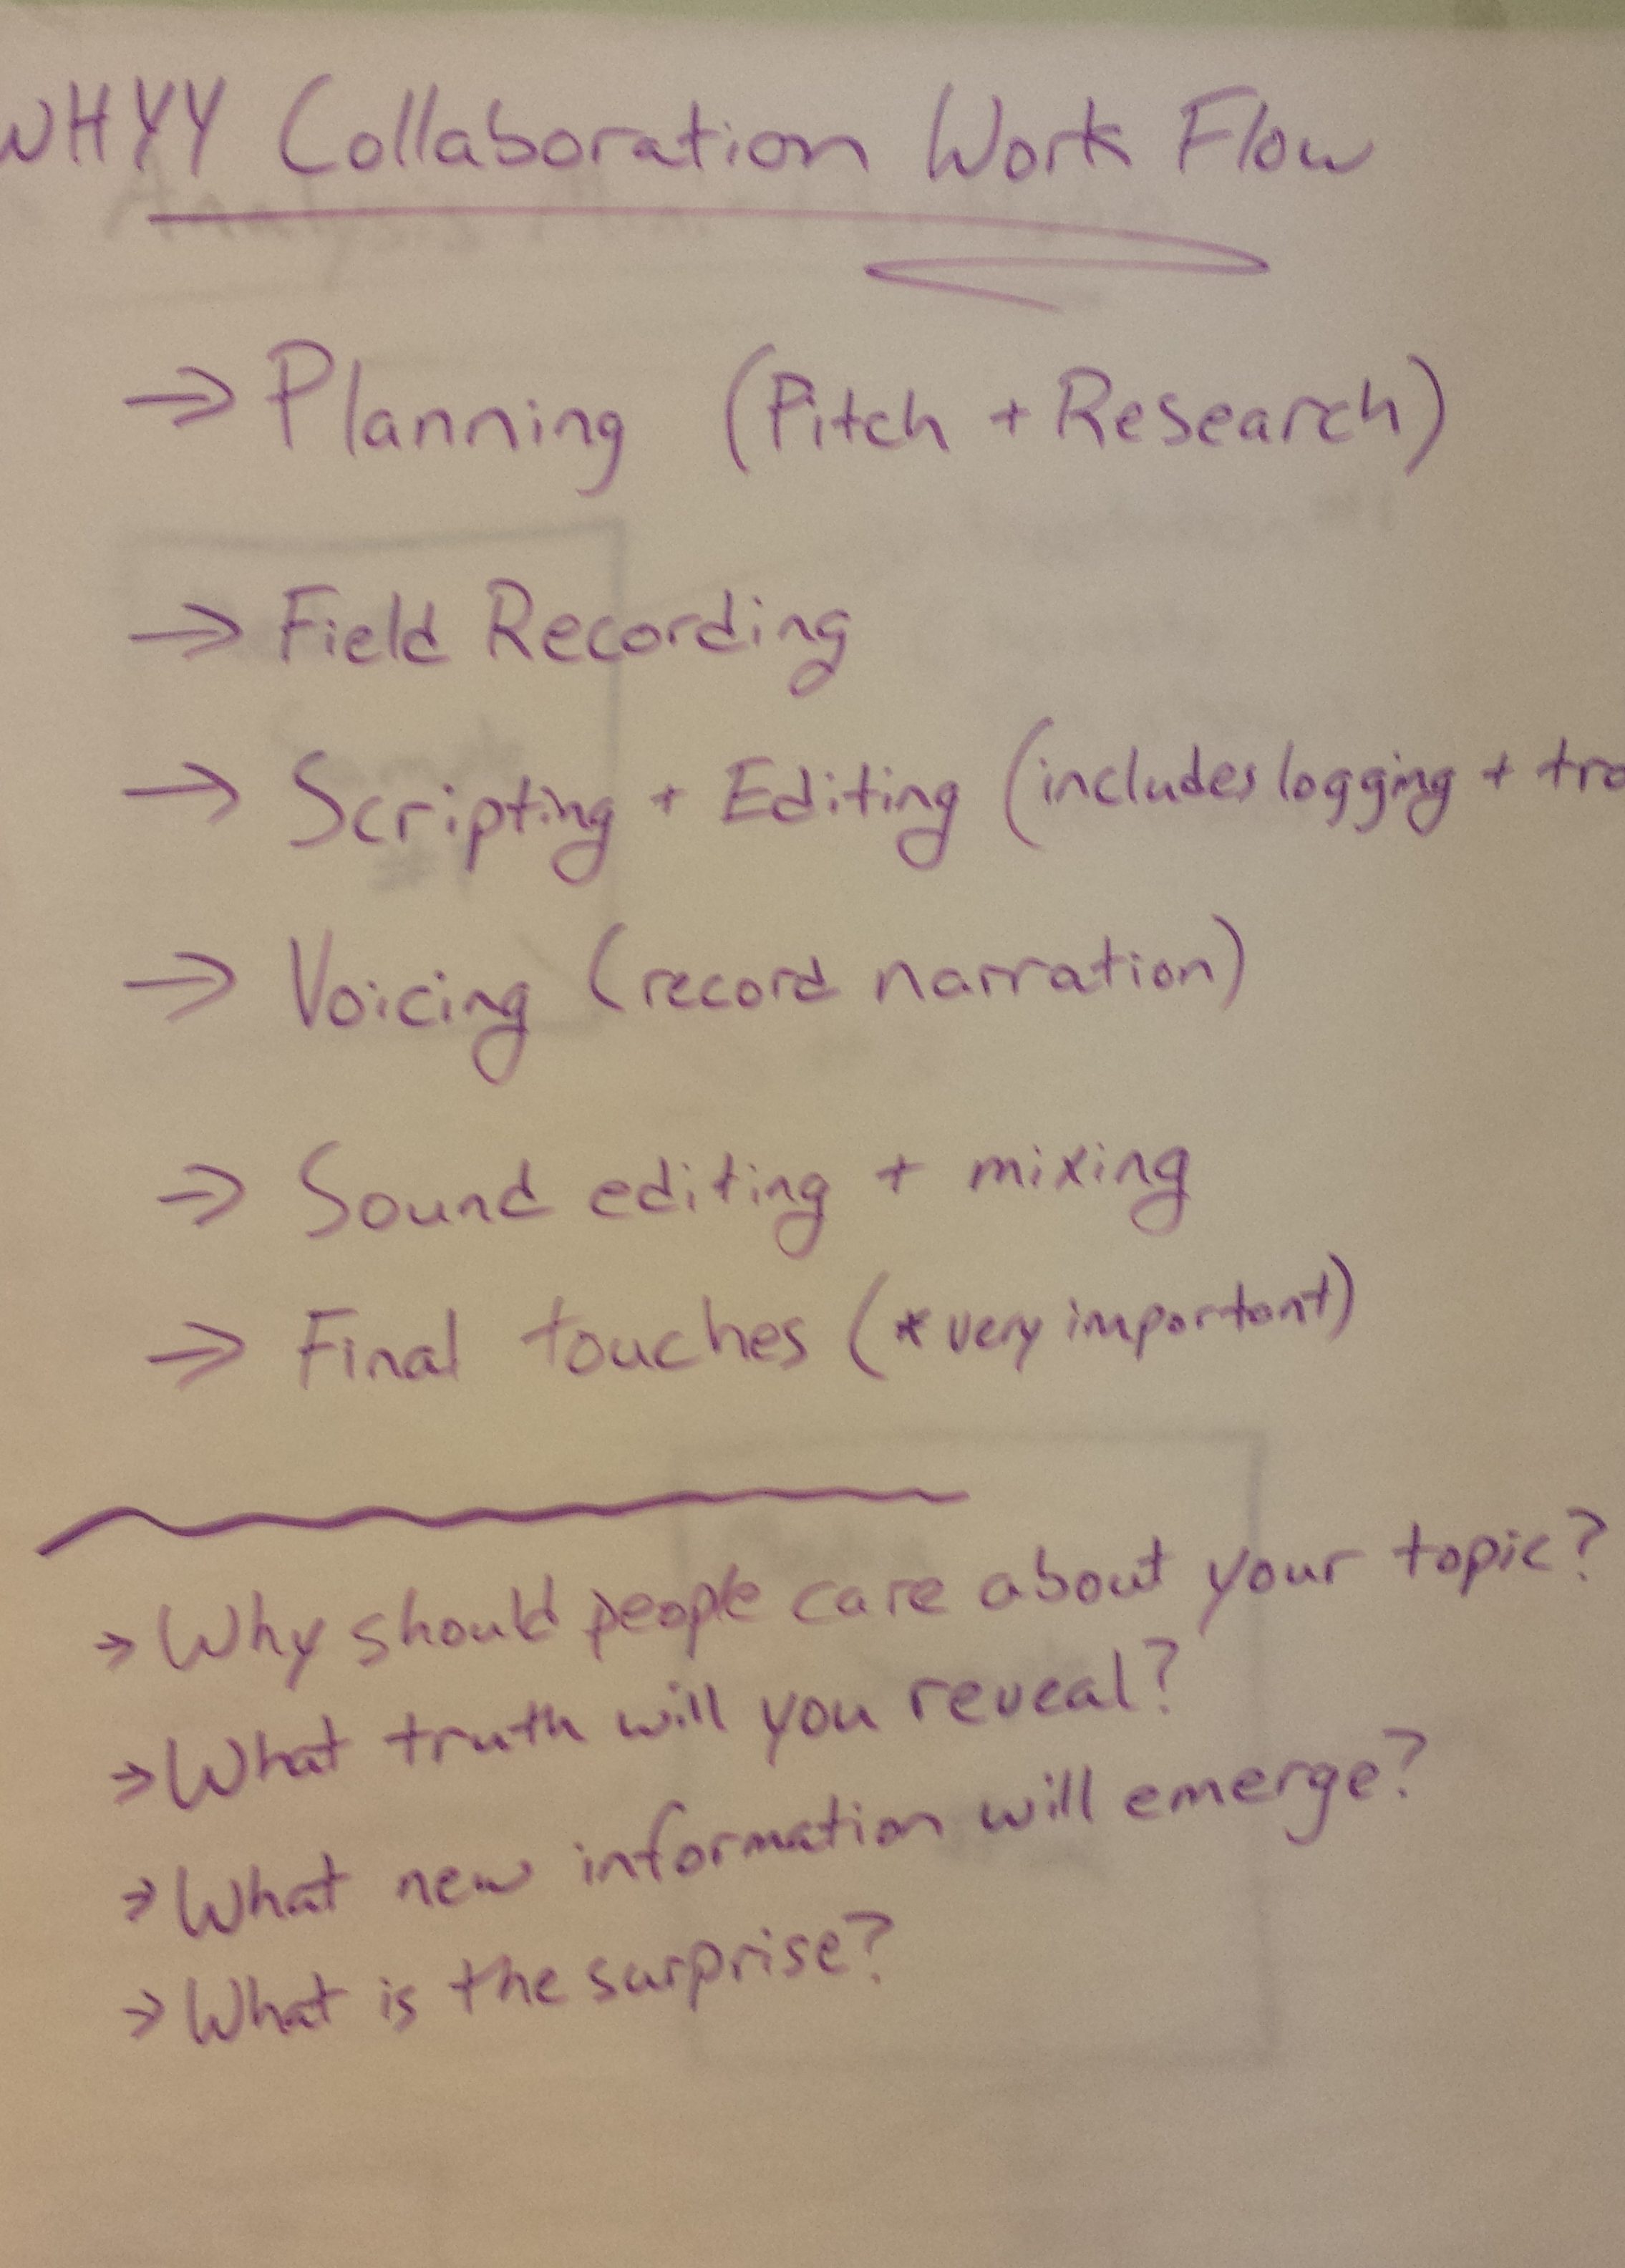 WHYY Collaboration Work Flow
→ Planning (Pitch + Research)
→ Field Recording
→ Scripting + Editing (includes logging +
→ Voicing (record narration)
→ Sound editing + mixing
→ Final touches (* very important)
→ Why should people care about your topic?
→ What truth will you reveal?
→ What new information will emerge?
→ What is the surprise?